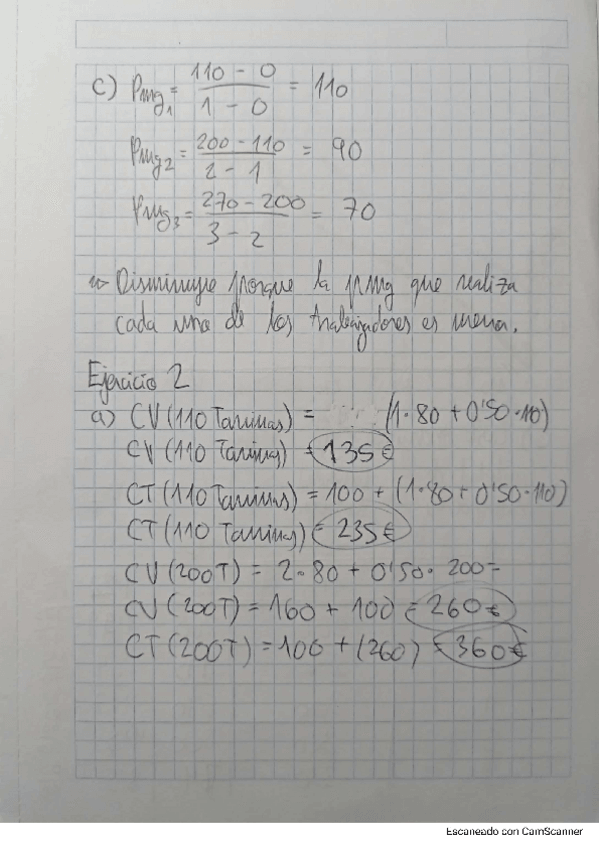 c) Pmg₁ = (110 - 0)/(1 - 0) = 110
Pmg₂ = (200 - 110)/(2 - 1) = 90
Pmg₃ = (270 - 200)/(3 - 2) = 70
Disminuye porque la pmg que realiza
cada uno de los trabajadores es menor.
Ejercicio 2
a) CV (110 Tarimas) = (1·80 + 0'50·110)
CV (110 Tarimas) = 135€
CT (110 Tarimas) = 100 + (1·80 + 0'50·110)
CT (110 Tarimas) = 235€
CV (200T) = 2·80 + 0'50·200=
CV (200T) = 160 + 100 = 260€
CT (200T) = 100 + (260) = 360€
Escaneado con CamScanner